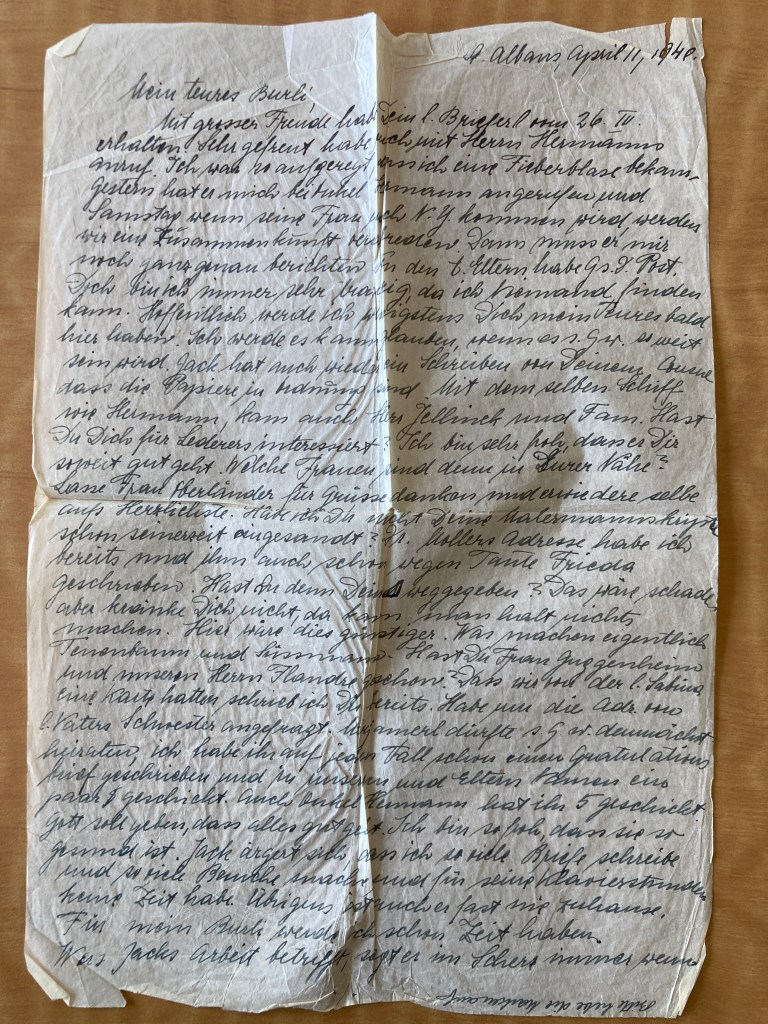 St. Albans, April 11, 1940.
Mein teures Burli,
Mit grosser Freude habe Dein l. Brieferl vom 26. III.
erhalten. Sehr gefreut habe mich mit Herrn Hermanns
anruf. Ich war so aufgeregt dass ich eine Fieberblase bekam.
Gestern hat er mich bei Onkel Hermann angerufen und
Samstag wenn seine Frau nach N.Y. kommen wird, werden
wir eine Zusammenkunft verabreden. Dann muss er mir
noch ganz genau berichten. Zu den l. Eltern habe G.s.D. Post.
Doch bin ich immer sehr traurig, da ich niemand finden
kann. Hoffentlich werde ich wenigstens Dich mein Teures bald
hier haben. Ich werde es kaum glauben, wenn es s.G.w. so weit
sein wird. Jack hat auch wieder ein Schreiben von Deinem Consul
dass die Papiere in Ordnung sind. Mit dem selben Schiff
wie Hermann, kam auch Herr Jellinek und Fam. Hast
Du Dich für Lederers interessiert? Ich bin sehr froh, dass es Dir
soweit gut geht. Welche Frauen sind denn in Eurer Nähe?
Lasse Frau Oberländer für Grüsse danken und erwiedere selbe
aufs Herzlichste. Habe ich Dir nicht Deine
schon seinerzeit angesandt? Dr. Mollers Adresse habe ich
bereits und ihm auch schon wegen Tante Frieda
geschrieben. Hast Du denn Deine weggegeben? Das wäre schade
aber kränke Dich nicht, da kann man halt nichts
machen. Hier wäre dies günstiger. Was machen eigentlich
Tenenbaum und Süssmann. Hast Du Frau Guggenheim
und unseren Herrn geschon? Dass wir von der l. Sabina
eine Karte hatten schrieb ich Dir bereits. Habe um die Adr. von
l. Vaters Schwester angefragt. dürfte s.G.w. demnächst
heiraten, ich habe ihr auf jeden Fall schon einen Gratulations
brief geschrieben und in unseren und Eltern Namen ein
paar $ geschickt. Auch Onkel Hermann hat ihr 5 geschickt
Gott soll geben, dass alles gut geht. Ich bin so froh, dass sie so
gesund ist. Jack ärgert sich, dass ich so viele Briefe schreibe
und so viele Besuche mache und für seine Klavierstunden
keine Zeit habe. Übrigens ist auch er fast nie zuhause.
Für mein Burli werde ich schon Zeit haben.
Was Jacks Arbeit betrifft, sagt er im Scherz immer wenn
Bitte hebe die